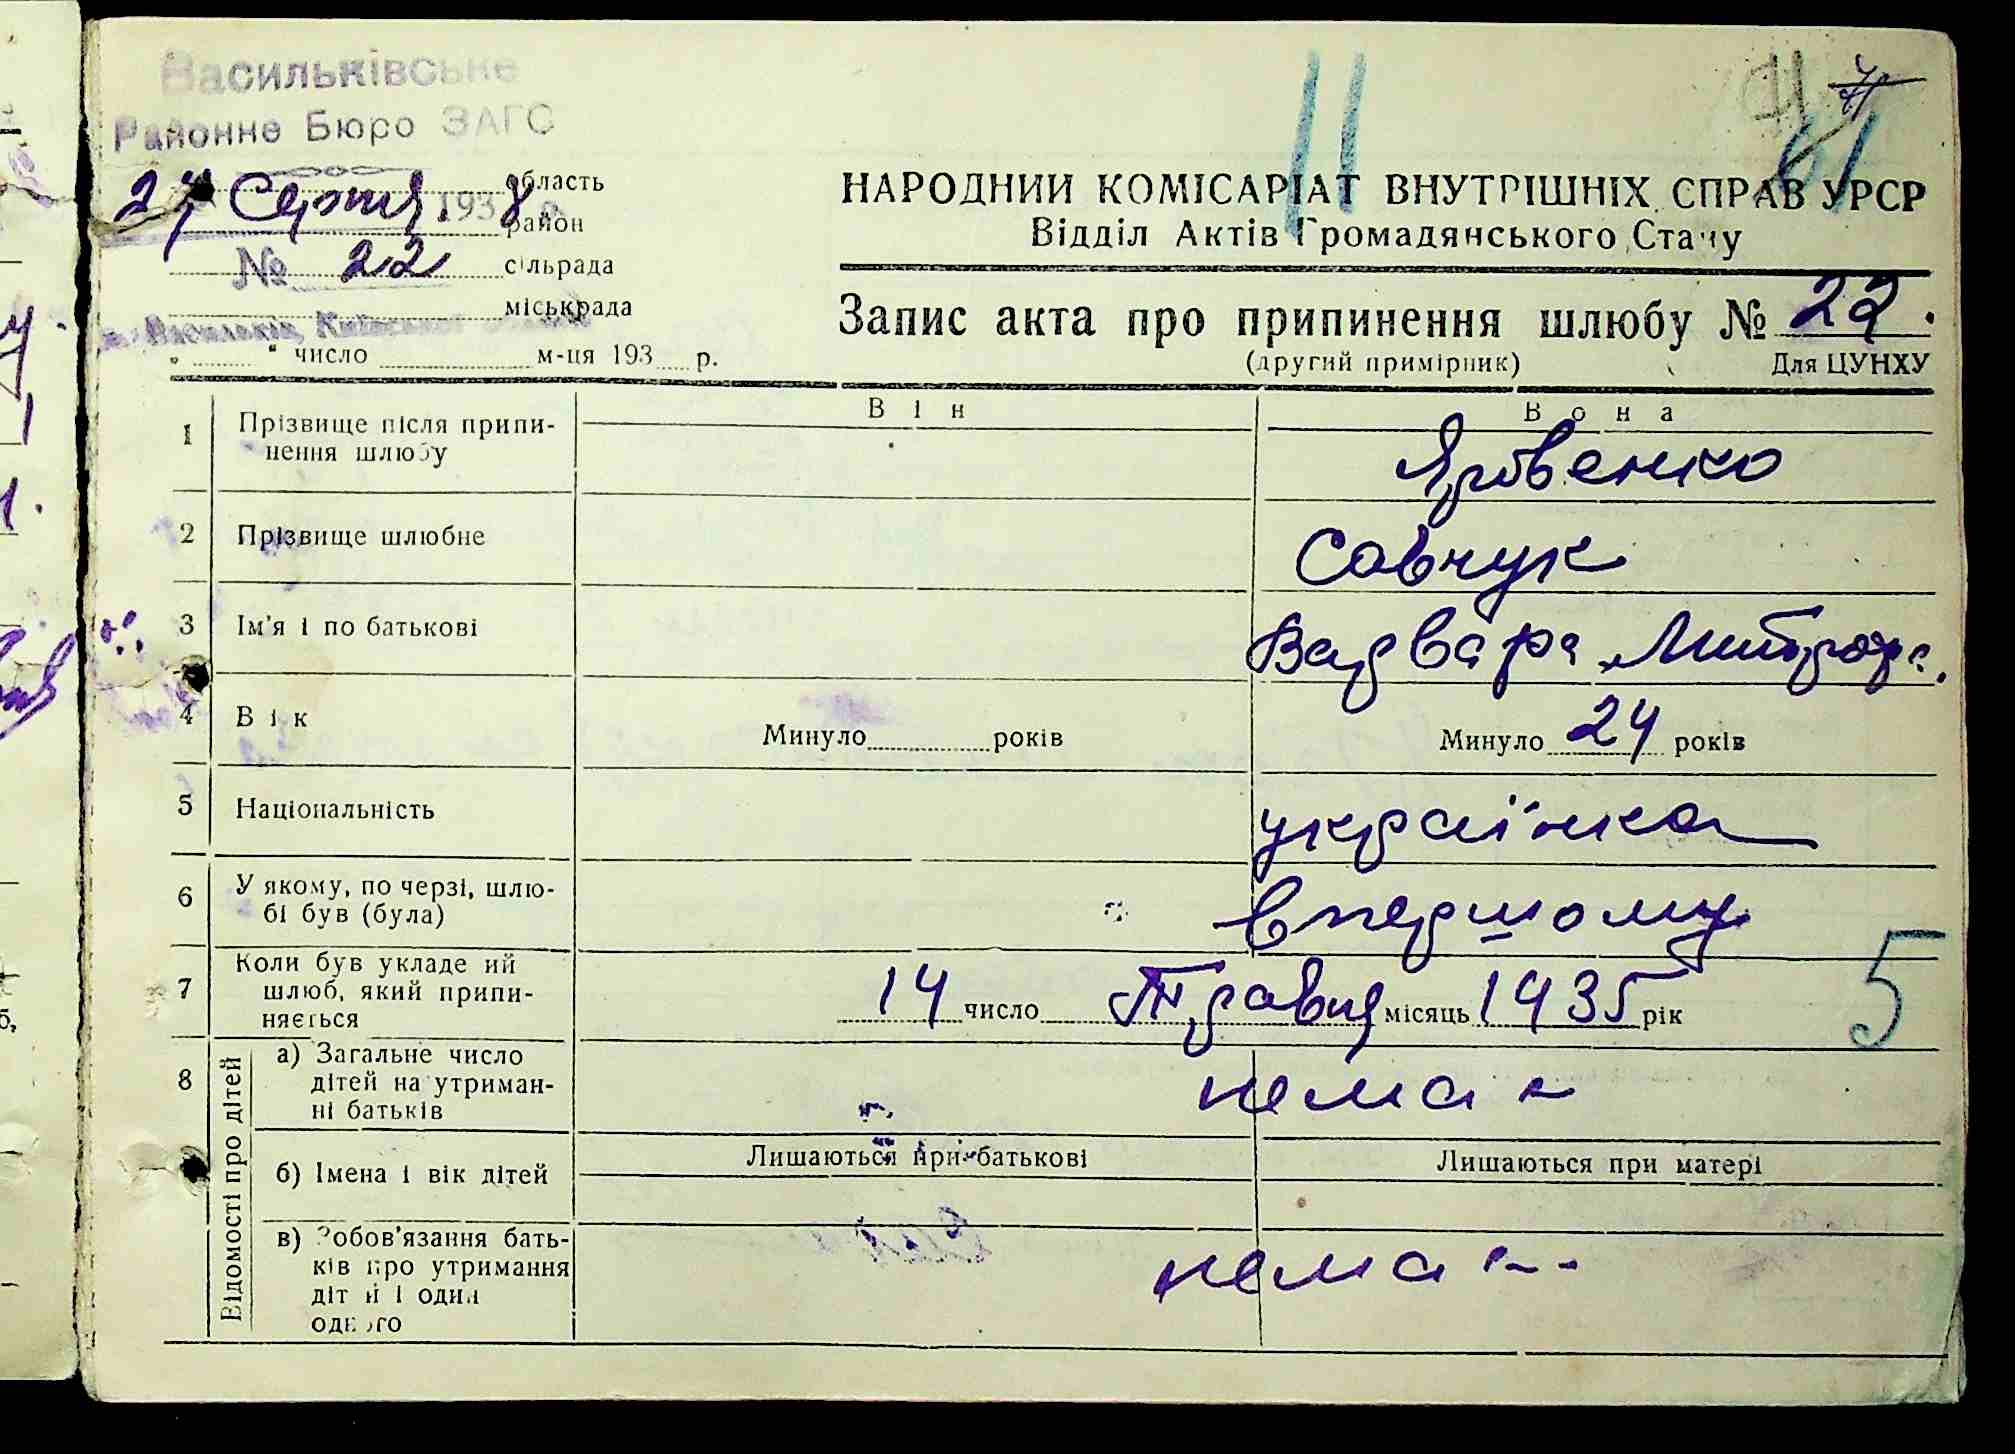 Васильківське
Районне Бюро ЗАГС
область
24 Серпня 1938
район
№ 22 сільрада
міськрада
м. Васильків, Київської області
„ “ число м-ця 193 р.
11
61
НАРОДНИЙ КОМІСАРІАТ ВНУТРІШНІХ СПРАВ УРСР
Відділ Актів Громадянського Стану
Запис акта про припинення шлюбу № 22.
(другий примірник) Для ЦУНХУ
Він Вона
1 Прізвище після припи-
нення шлюбу Яровенко
2 Прізвище шлюбне Савчук
3 Ім'я і по батькові Варвара Митроф.
4 Вік Минуло років Минуло 24 років
5 Національність українка
6 У якому, по черзі, шлю-
бі був (була) в першому
7 Коли був укладений
шлюб, який припи-
няється 14 число Травня місяць 1935 рік
5
8 Відомості про дітей
а) Загальне число
дітей на утриман-
ні батьків нема
б) Імена і вік дітей Лишаються при батькові Лишаються при матері
в) Зобов'язання бать-
ків про утримання
дітей і один
одного нема